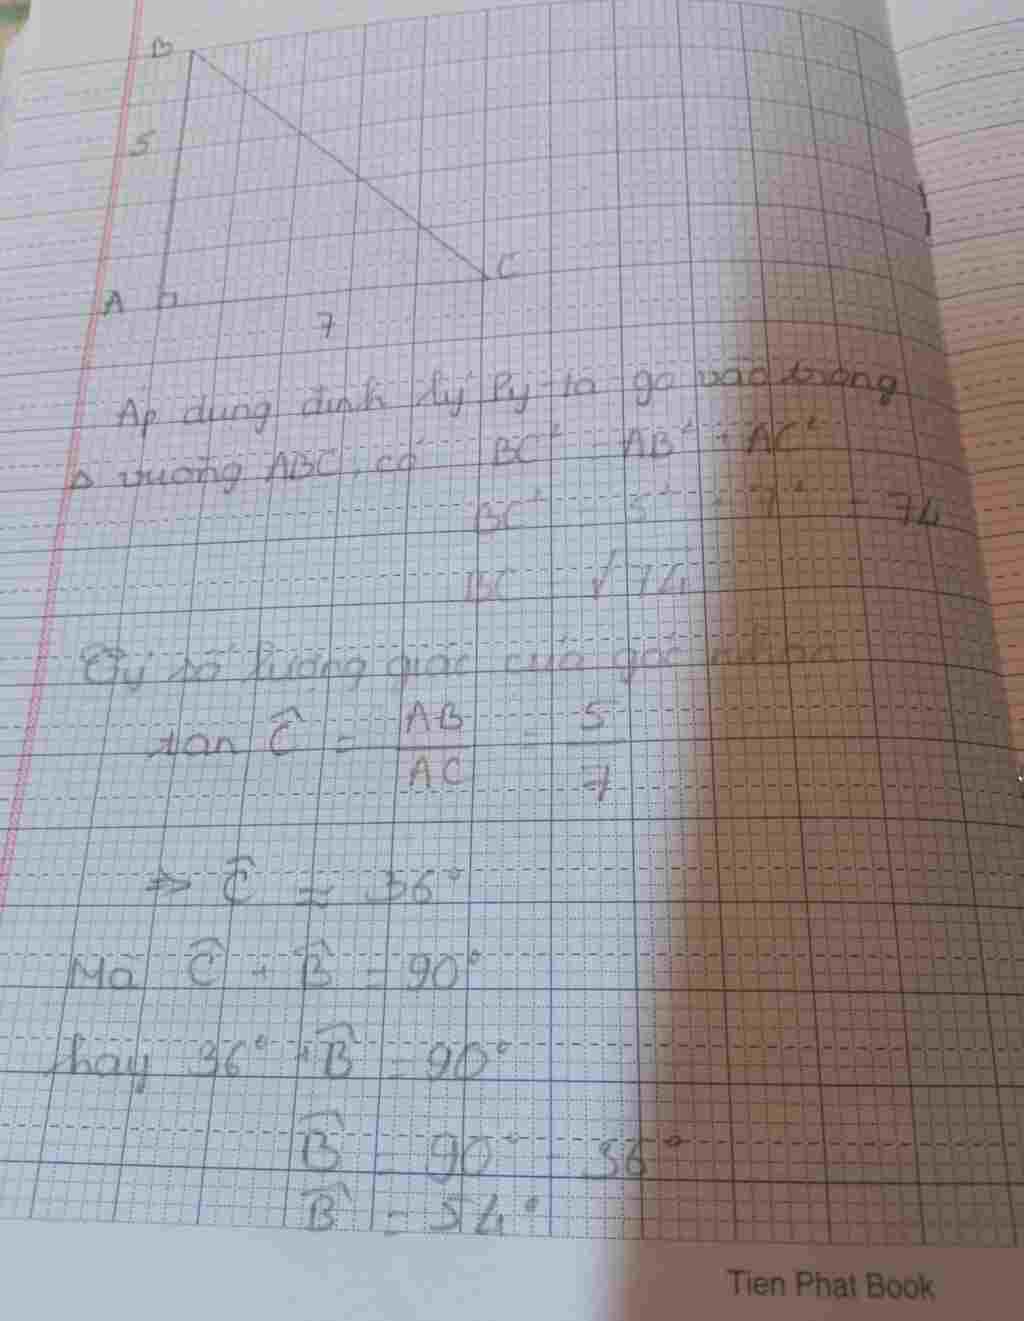 B
5
A
C
7
Áp dụng định lý Py-ta go vào trong
Δ vuông ABC, có BC² = AB² + AC²
BC² = 5² + 7² = 74
BC = √74
Tỷ số lượng giác của góc nhọn
tan Ĉ = AB/AC = 5/7
=> Ĉ ≈ 36°
Mà Ĉ + B̂ = 90°
hay 36° + B̂ = 90°
B̂ = 90° - 36°
B̂ = 54°
Tien Phat Book